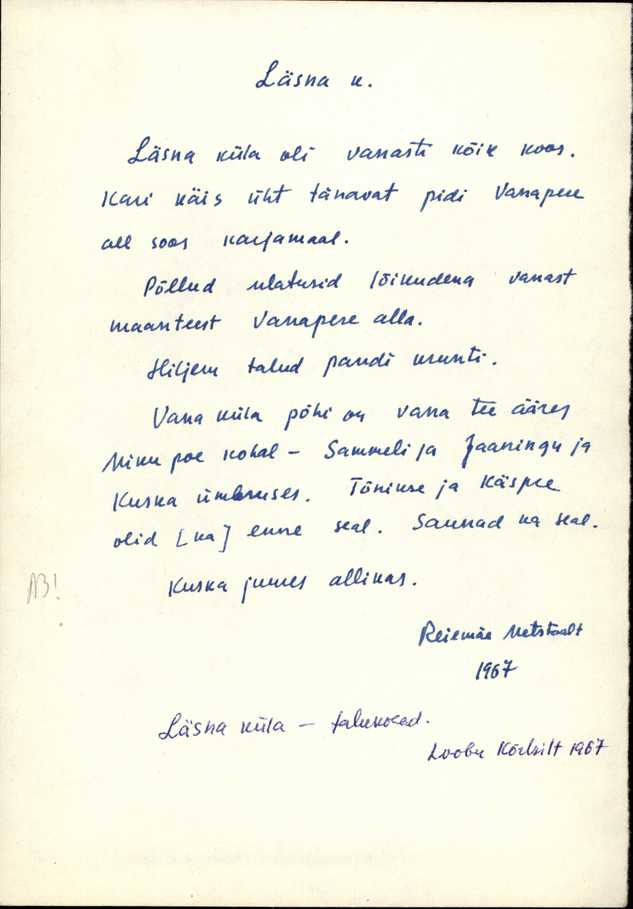 Läsna k.
Läsna küla oli vanasti kõik koos.
Kari käis üht tänavat pidi Vanapere
all soos karjamaal.
Põllud ulatusid lõikudena vanast
maanteest Vanapere alla.
Hiljem talud pandi krunti.
Vana küla põhi on vana tee ääres
Niku poe kohal – Sammeli ja Jaaningu ja
Kuska ümbruses. Tõnikse ja Käspre
olid [ka] enne seal. Saunad ka seal.
Kuska juures allikas.
NB!
Reiemäe Metstaalt
1967
Läsna küla – talukohad.
Loobu Kõrtsilt 1967